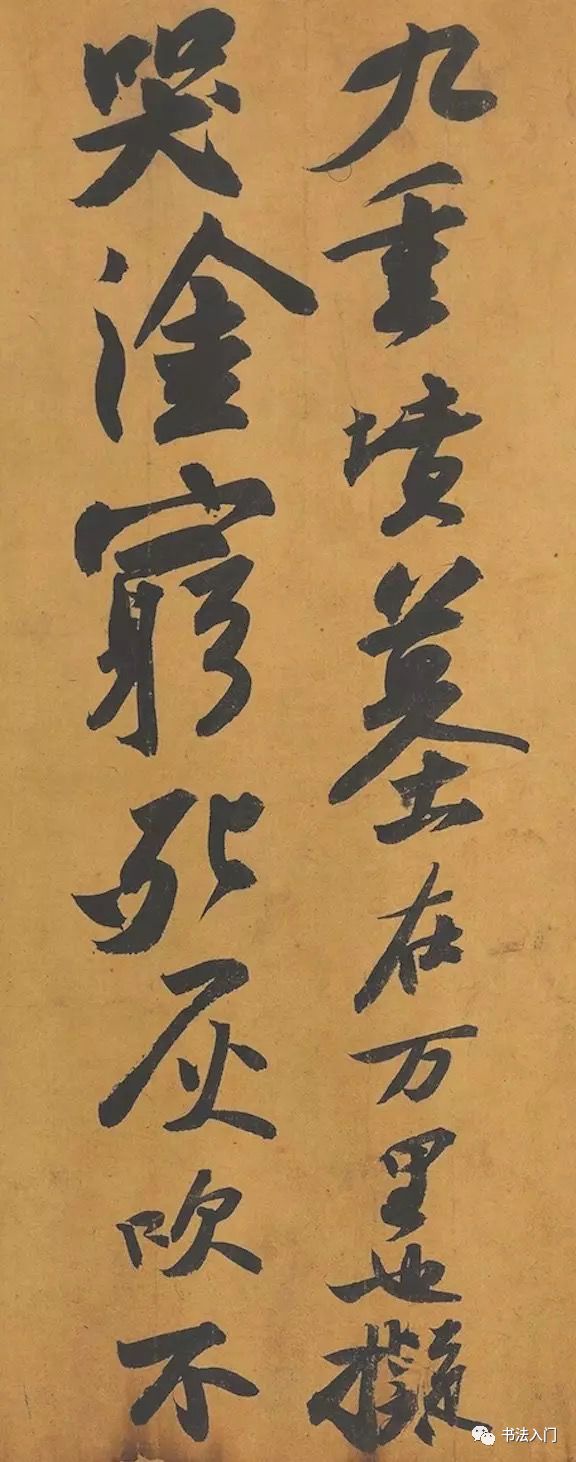 九重墳墓在万里也擬
哭塗窮死灰吹不
书法入门